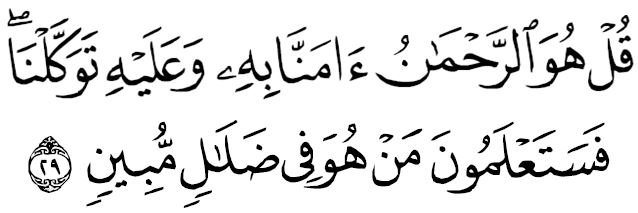 قُلْ هُوَ ٱلرَّحْمَـٰنُ ءَامَنَّا بِهِۦ وَعَلَيْهِ تَوَكَّلْنَا ۖ
فَسَتَعْلَمُونَ مَنْ هُوَ فِى ضَلَـٰلٍ مُّبِينٍ ٢٩